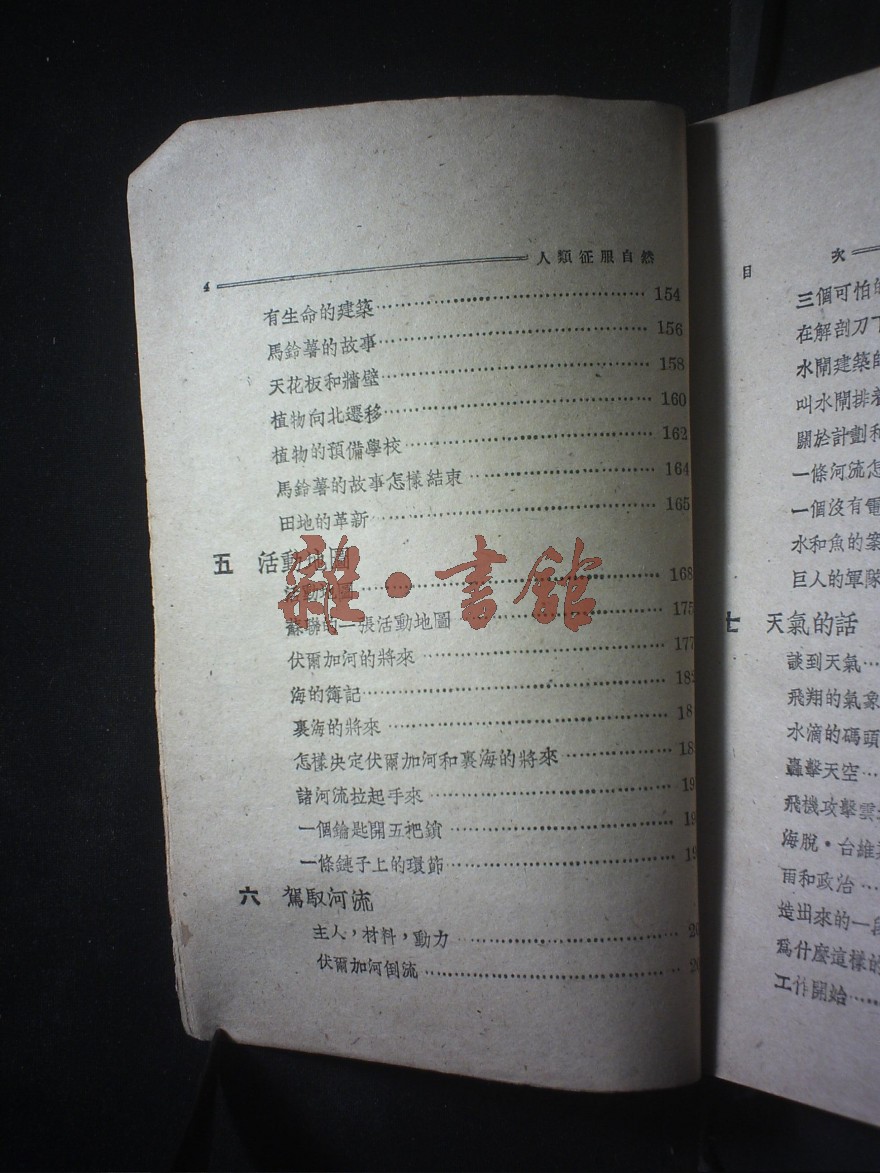 4 人類征服自然
有生命的建築 154
馬鈴薯的故事 156
天花板和牆壁 158
植物向北遷移 160
植物的預備學校 162
馬鈴薯的故事怎樣結束 164
田地的革新 165
五 活動地圖
活動地圖 168
蘇聯的一張活動地圖 175
伏爾加河的將來 177
海的簿記 182
裏海的將來 18
怎樣决定伏爾加河和裏海的將來 18
諸河流拉起手來 19
一個鑰匙開五把鎖 19
一條鏈子上的環節 19
六 駕馭河流
主人，材料，動力 20
伏爾加河倒流 20
雜·書館
目 次
三個可怕的
在解剖刀下
水閘建築師
叫水閘排着
關於計劃和
一條河流怎
一個沒有電
水和魚的築
巨人的軍隊
七 天氣的話
談到天氣
飛翔的氣象
水滴的碼頭
轟擊天空
飛機攻擊雲
海脫·台維
雨和政治
造出來的一段
爲什麼這樣的
工作開始